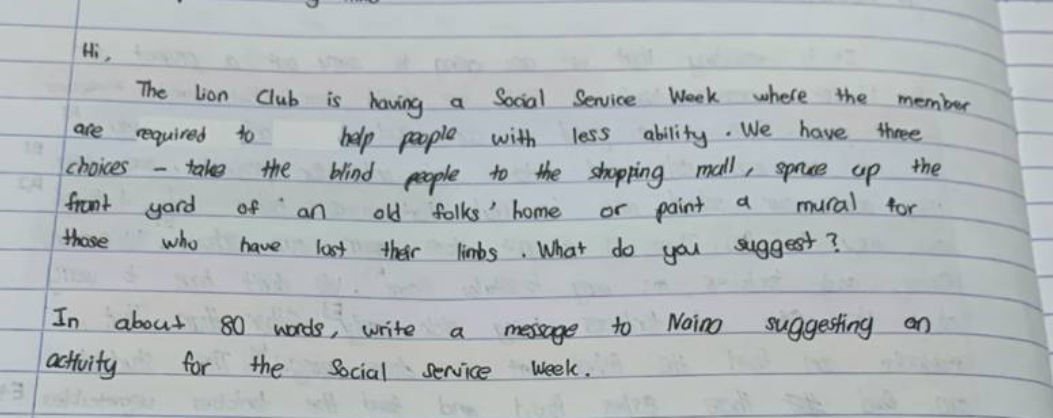 Hi,
The Lion Club is having a Social Service Week where the member
are required to help people with less ability. We have three
choices - take the blind people to the shopping mall, spruce up the
front yard of an old folks' home or paint a mural for
those who have lost their limbs. What do you suggest?
In about 80 words, write a message to Naina suggesting an
activity for the Social Service Week.